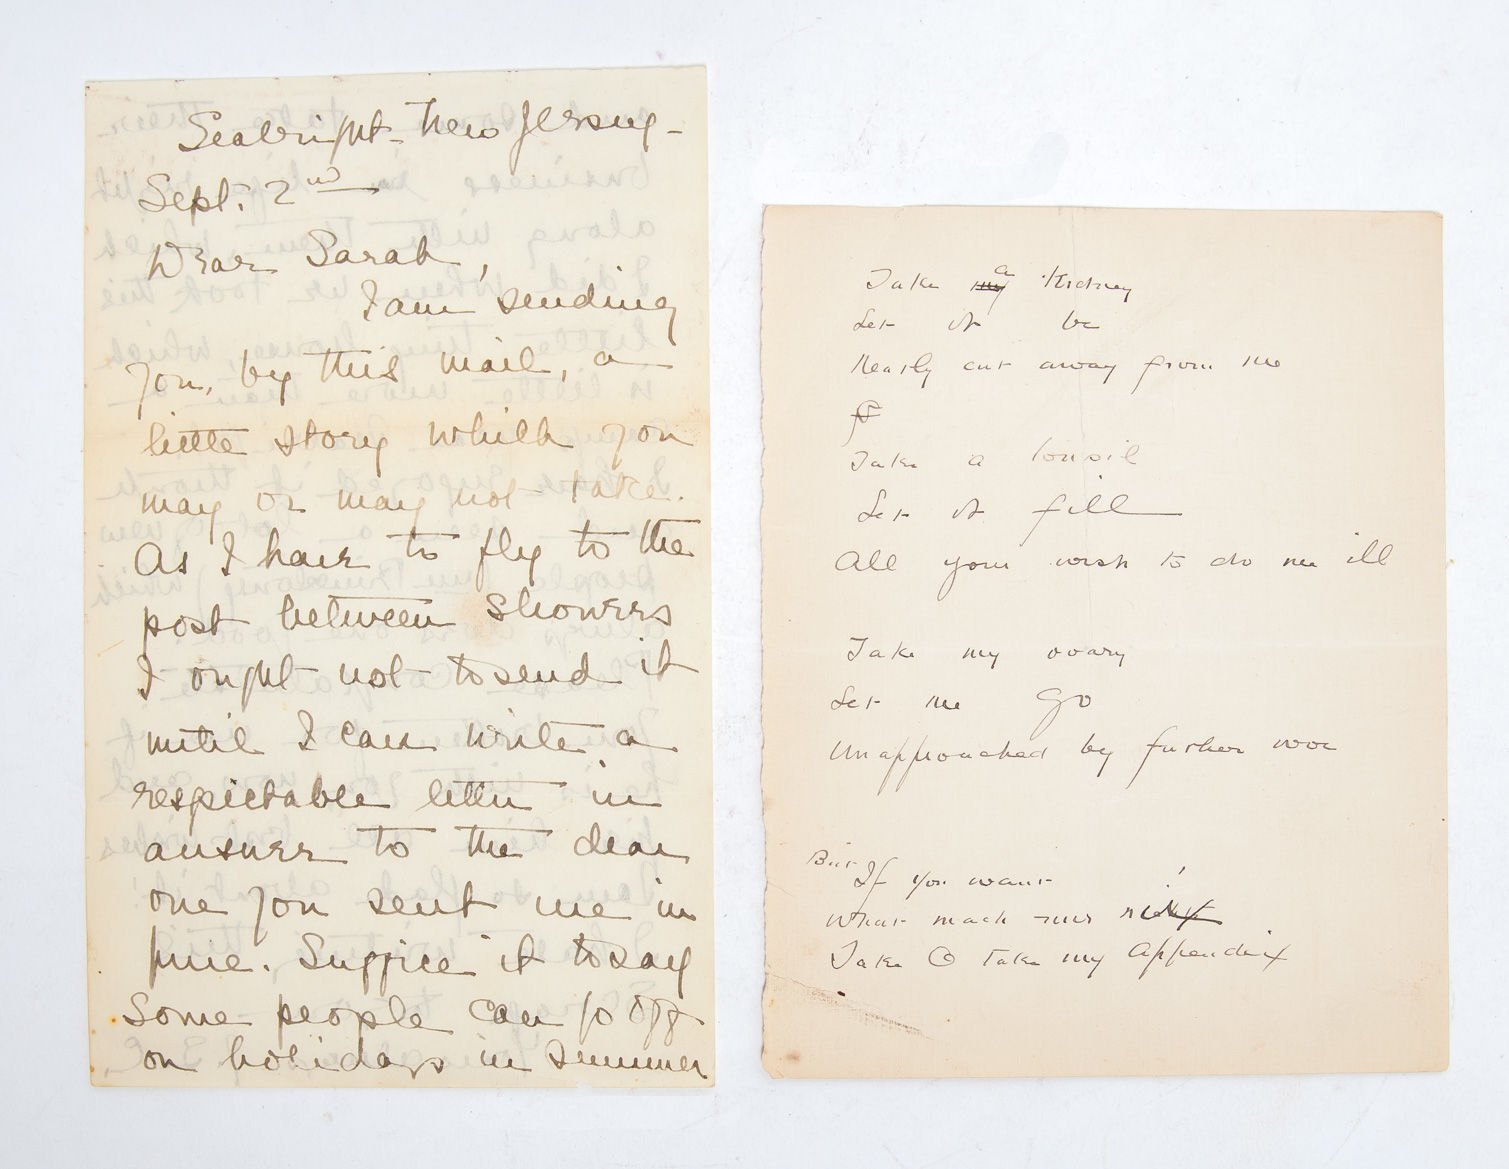 Seabright - New Jersey -
Sept. 2nd
Dear Sarah,
I am sending
you, by this mail, a
little story which you
may or may not take.
As I have to fly to the
post between showers
I ought not to send it
until I can write a
respectable letter in
answer to the dear
one you sent me in
June. Suffice it to say
some people can go off
on holidays in summer
Take my a Kidney
Let it be
Neatly cut away from me
Take a tonsil
Let it fill
All your wish to do me ill
Take my ovary
Let me go
Unapproached by further woe
But If you want
What much
Take O take my appendix